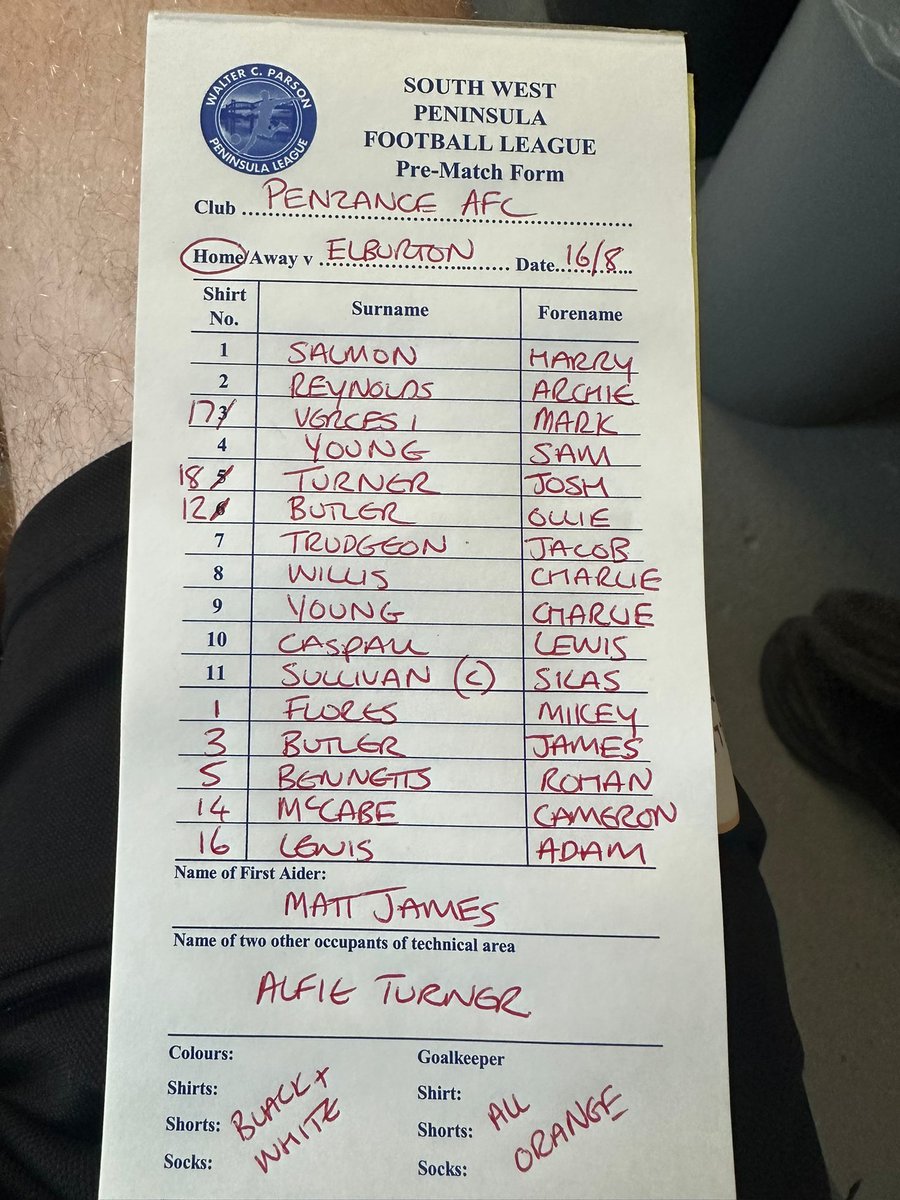 WALTER C. PARSON
PENINSULA LEAGUE
SOUTH WEST
PENINSULA
FOOTBALL LEAGUE
Pre-Match Form
Club PENZANCE AFC
Home/Away v ELBURTON Date 16/8
Shirt No. Surname Forename
1 SALMON HARRY
2 REYNOLDS ARCHIE
17 3 VERCESI MARK
4 YOUNG SAM
18 5 TURNER JOSH
12 6 BUTLER OLLIE
7 TRUDGEON JACOB
8 WILLIS CHARLIE
9 YOUNG CHARLIE
10 CASPALL LEWIS
11 SULLIVAN (C) SILAS
1 FLORES MIKEY
3 BUTLER JAMES
5 BENNETTS ROMAN
14 McCABE CAMERON
16 LEWIS ADAM
Name of First Aider:
MATT JAMES
Name of two other occupants of technical area
ALFIE TURNER
Colours: Goalkeeper
Shirts: Shirt:
Shorts: BLACK + WHITE Shorts: ALL ORANGE
Socks: Socks: